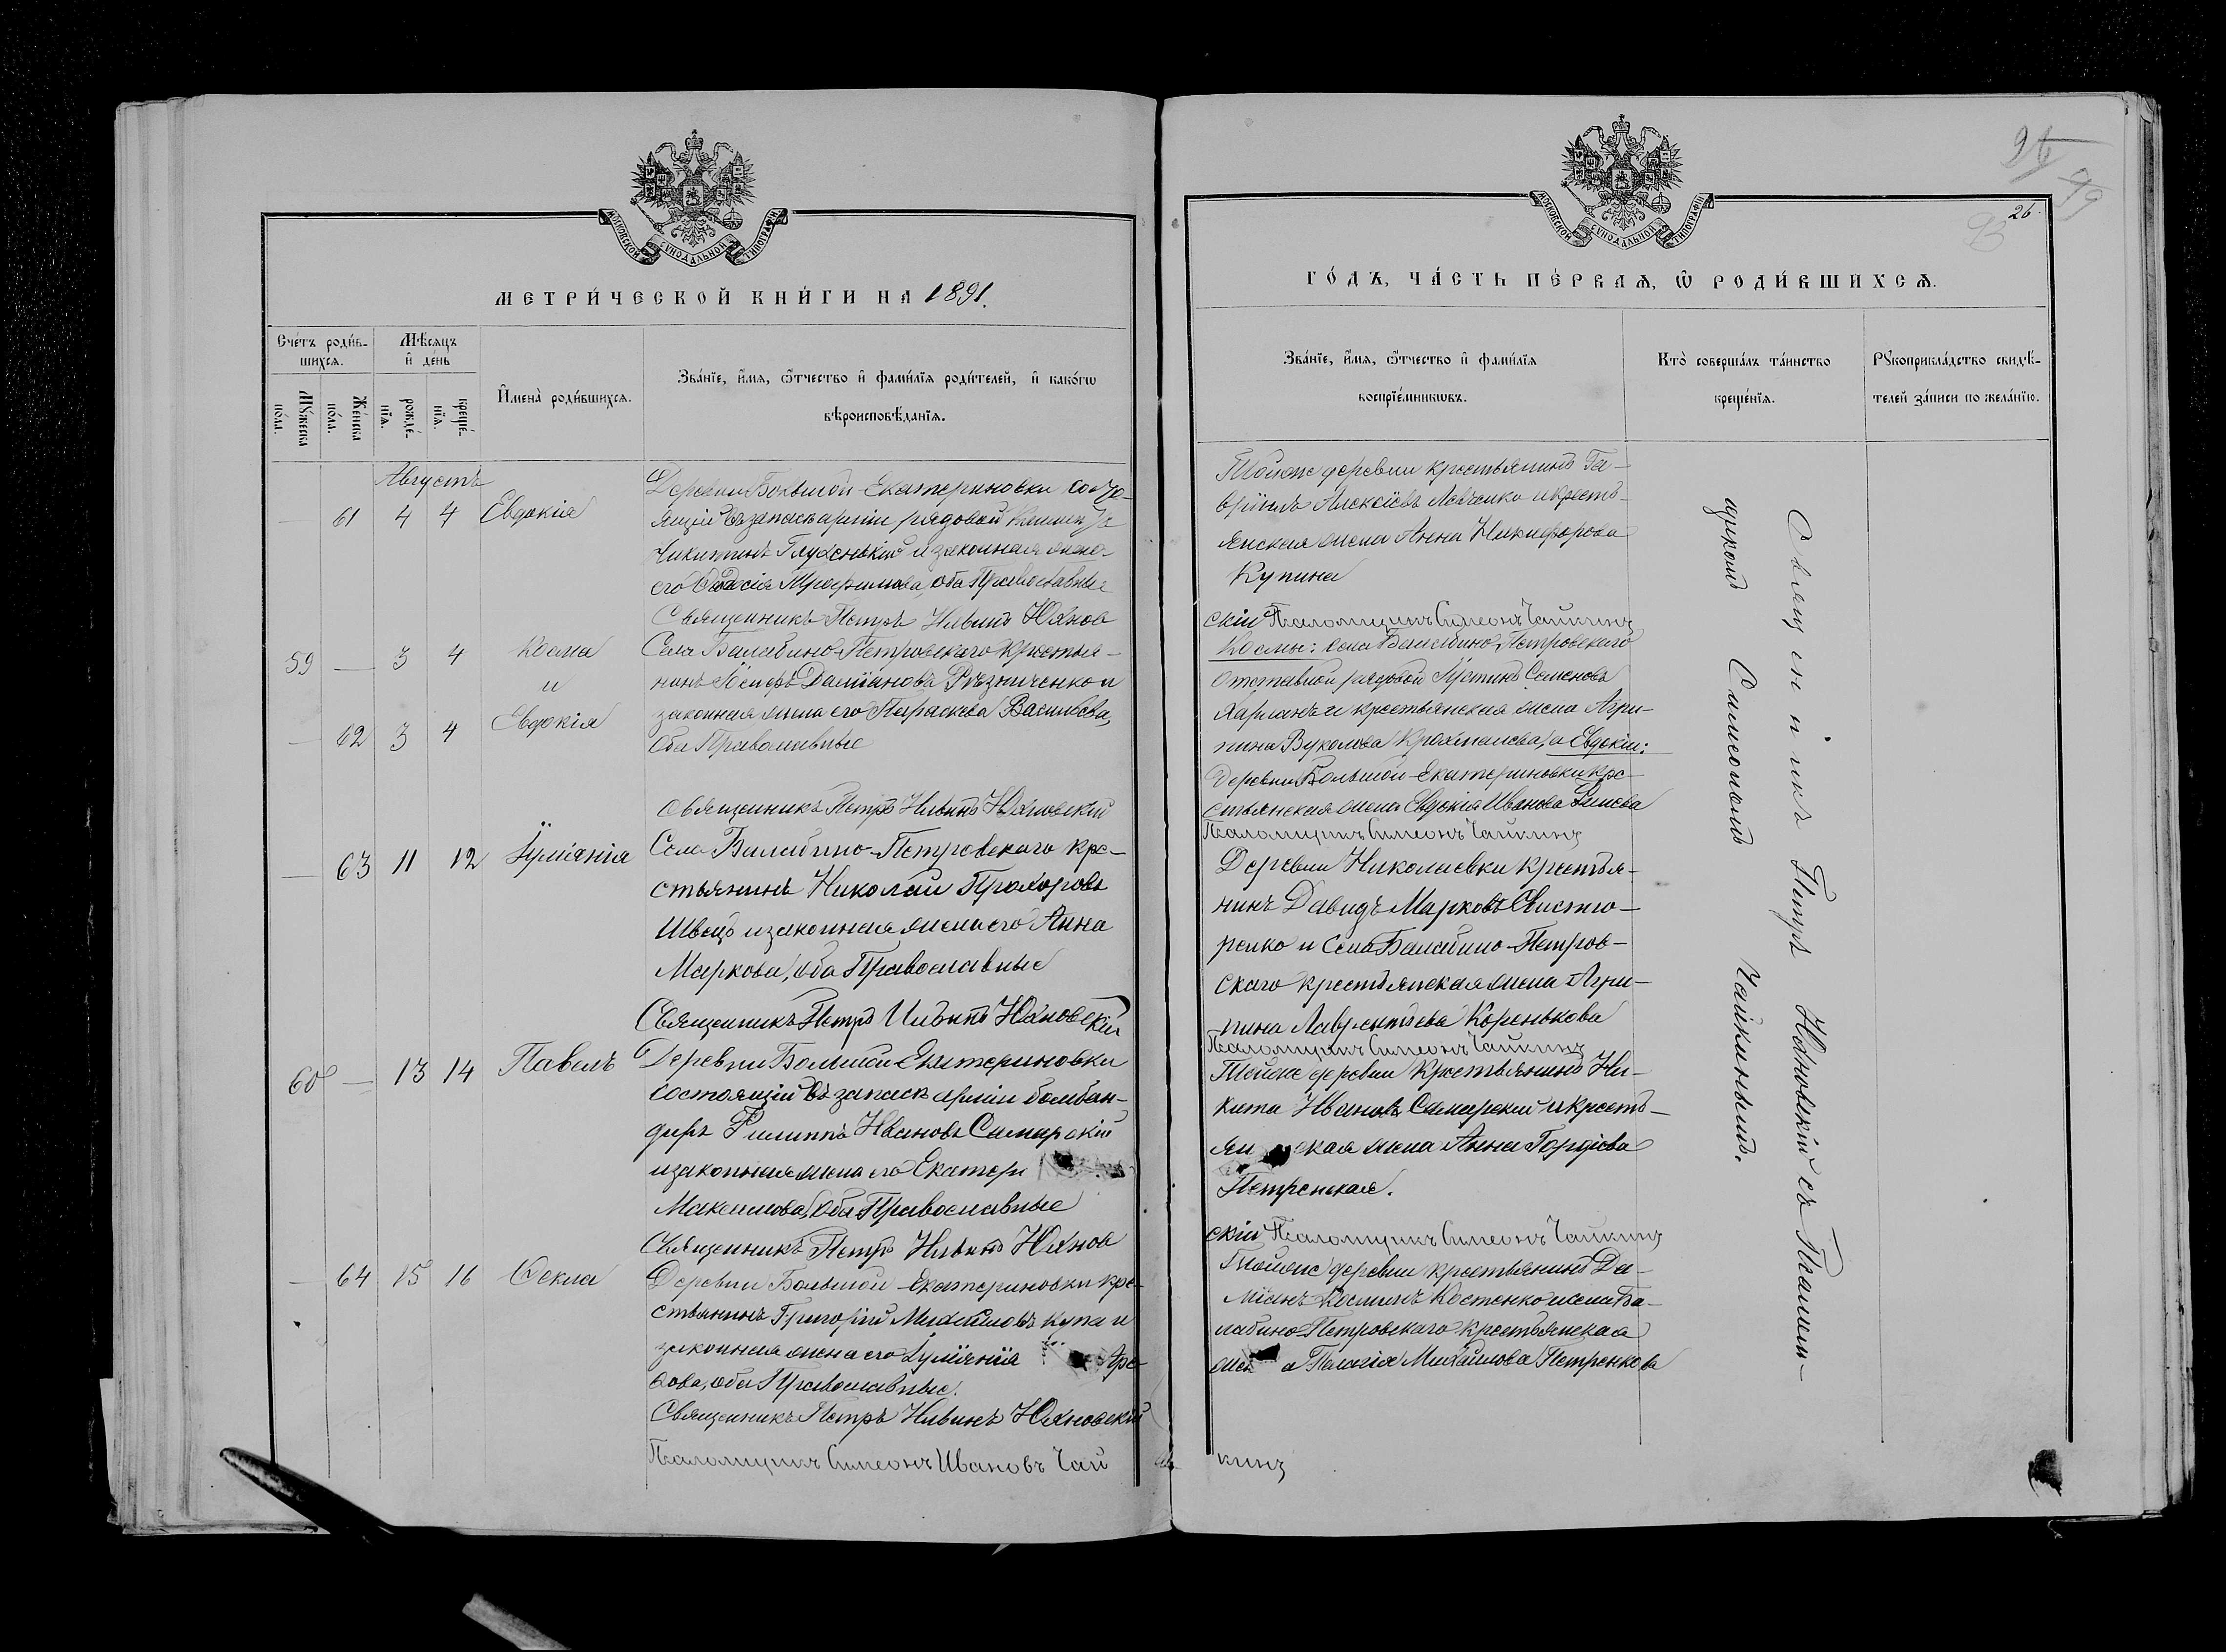 МОСКОВСКОЙ СѴНОДАЛЬНОЙ ТИПОГРАФІИ
МЕТРИ́ЧЕСКОЙ КНИ́ГИ НА 1891.
Сче́тъ роди́в-
шихсѧ.
Мѣ́сѧцъ
и҆ де́нь
Мꙋ́жеска
по́ла.
Же́нска
по́ла.
рожде́-
нїѧ.
креще́-
нїѧ.
И҆мена̀ роди́вшихсѧ.
Зва́нїе, и҆́мѧ, ѻ҆́тчество и҆ фами́лїѧ роди́телей, и҆ како́гѡ
вѣроисповѣ́данїѧ.
Августъ
— 61 4 4 Евдокія
Деревни Большой-Екатериновки состо-
ящій въ запасѣ арміи рядовой
Никитинъ Глуховскій и законная жена
его Ѳеодосія Трофимова, оба Православные
Священникъ Петръ Ильинъ Юхнов
59 — 3 4 Косма
и
— 62 3 4 Евдокія
Села Балабино-Петровскаго крестья-
нинъ Іосифъ Даміановъ Рѣзниченко и
законная жена его Параскева Васильева,
оба Православные
Священникъ Петръ Ильинъ Юхновскій
— 63 11 12 Іуліанія
Села Балабино-Петровскаго кре-
стьянинъ Николай Прохоровъ
Швецъ и законная жена его Анна
Маркова, оба Православные
Священникъ Петръ Ильинъ Юхновскій
60 — 13 14 Павелъ
Деревни Большой Екатериновки
состоящій въ запасѣ арміи бомбан-
диръ Филиппъ Ивановъ Самарскій
и законная жена его Екатери
Максимова, оба Православные
Священникъ Петръ Ильинъ Юхнов
— 64 15 16 Ѳекла
Деревни Большой-Екатериновки кре-
стьянинъ Григорій Михайловъ Купа и
законная жена его Іуліанія
това, оба Православные.
Священникъ Петръ Ильинъ Юхновскій
Псаломщикъ Симеонъ Ивановъ Чай
МОСКОВСКОЙ СѴНОДАЛЬНОЙ ТИПОГРАФІИ
26.
ГО́ДЪ, ЧА́СТЬ ПЕ́РВАѦ, Ѡ҆ РОДИ́ВШИХСѦ.
Зва́нїе, и҆́мѧ, ѻ҆́тчество и҆ фами́лїѧ
воспрїе́мникѡвъ.
Кто̀ соверша́лъ та́инство
креще́нїѧ.
Рꙋкоприкла́дство свидѣ́-
телей за́писи по жела́нїю.
Тойже деревни крестьянинъ Га-
вріилъ Алексіевъ Левченко и кресть-
янская жена Анна Никифорова
Купина
скій Псаломщикъ Симеонъ Чайкинъ
Космы: села Балабино-Петровскаго
отставной рядовой Іустинъ Семеновъ
Харланъ и крестьянская жена Агри-
пина Вуколова Крохмалева, а Евдокіи:
Деревни Большой-Екатериновки кре-
стьянская жена Евдокія Иванова
Псаломщикъ Симеонъ Чайкинъ
Деревни Николаевки крестья-
нинъ Давидъ Марковъ Свисто-
ренко и села Балабино-Петров-
скаго крестьянская жена Агри-
пина Лаврентьева Коренькова
Псаломщикъ Симеонъ Чайкинъ
Тойже деревни крестьянинъ Ни-
кита Ивановъ Самарскій и кресть-
ян ская жена Анна Гордіева
Петренская.
скій Псаломщикъ Симеонъ Чайкинъ
Тойже деревни крестьянинъ Да-
міанъ Косминъ Костенко и села Ба-
лабино-Петровскаго крестьянская
жен а Пелагія Михайлова Петренкова
кинъ
Священникъ Петръ Юхновскій съ Псалом-
щикомъ Симеономъ Чайкинымъ.